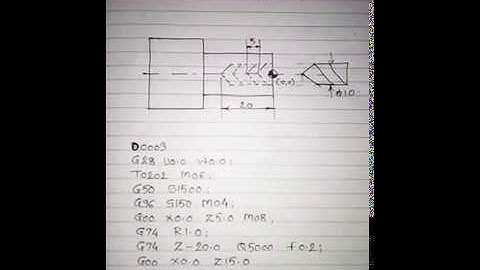 5
(0,0)
φ10
20
O0003
G28 U0.0 W0.0;
T0202 M06;
G50 S1500;
G96 S150 M04;
G00 X0.0 Z5.0 M08;
G74 R1.0;
G74 Z-20.0 Q5000 f0.2;
G00 X0.0 Z15.0